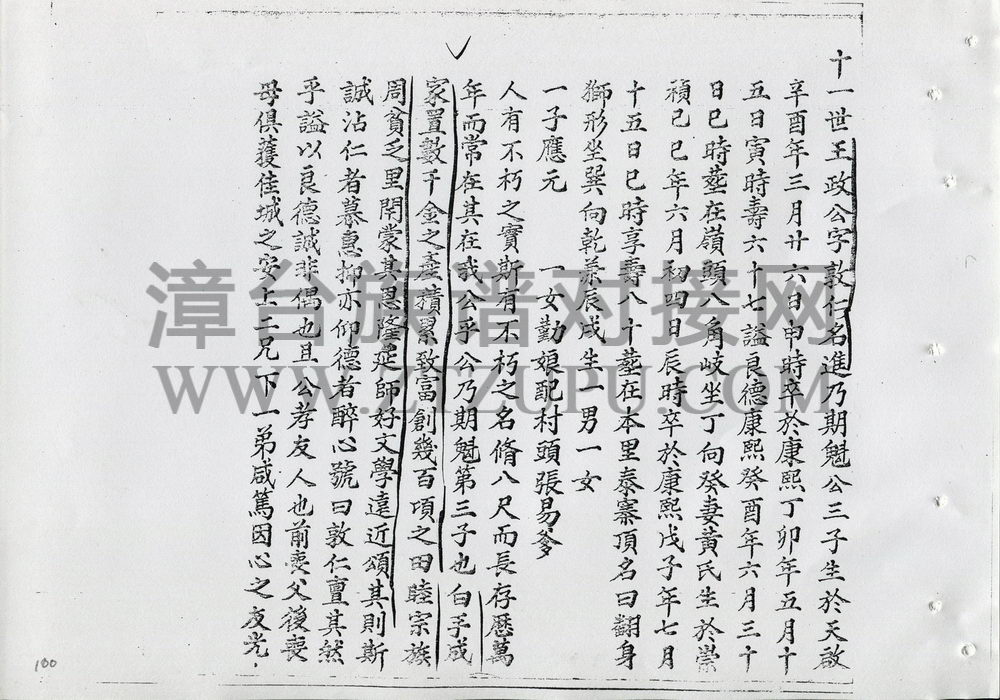 十一世王政公字敦仁名進乃期魁公三子生於天啟
辛酉年三月廿六日申時卒於康熙丁卯年五月十
五日寅時壽六十七謚良德康熙癸酉年六月三十
日巳時塟在嶺頭八角岐坐丁向癸妻黃氏生於崇
禎己巳年六月初四日辰時卒於康熙戊子年七月
十五日巳時享壽八十塟在本里泰寨頂名曰翻身
獅形坐巽向乾兼辰戌生一男一女
一子應元 一女勤娘配村頭張易爹
人有不朽之實斯有不朽之名脩八尺而長存歷萬
年而常在其在我公乎公乃期魁第三子也白手成
家置數千金之產積累致富創幾百項之田睦宗族
周貧乏里閈蒙其恩隆延師好文學遠近頌其則斯
誠沾仁者慕惠抑亦仰德者醉心號曰敦仁亶其然
乎謚以良德誠非偶也且公孝友人也前喪父後喪
母俱蒦佳城之安上二兄下一弟咸篤因心之友光
漳台族谱对接网
WWW.ZTZUPU.COM
100